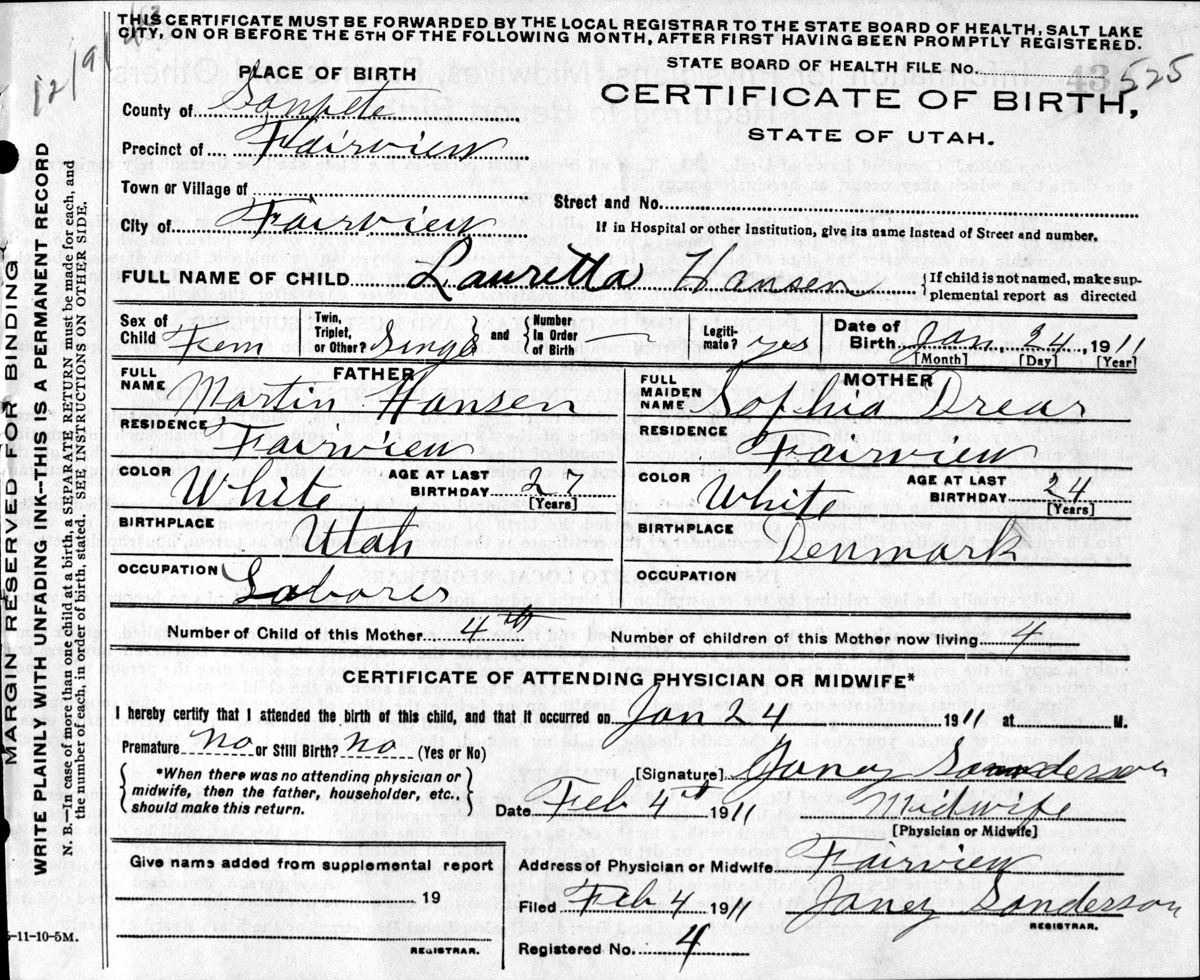 THIS CERTIFICATE MUST BE FORWARDED BY THE LOCAL REGISTRAR TO THE STATE BOARD OF HEALTH, SALT LAKE
CITY, ON OR BEFORE THE 5TH OF THE FOLLOWING MONTH, AFTER FIRST HAVING BEEN PROMPTLY REGISTERED.
STATE BOARD OF HEALTH FILE No. 43 525
PLACE OF BIRTH
CERTIFICATE OF BIRTH,
STATE OF UTAH.
County of Sanpete
Precinct of Fairview
Town or Village of
Street and No.
City of Fairview
If in Hospital or other Institution, give its name instead of Street and number.
FULL NAME OF CHILD Lauretta Hansen {If child is not named, make sup-
plemental report as directed
Sex of Child Fem Twin, Triplet, or Other? Singl and {Number In Order of Birth — Legiti-mate? yes Date of Birth Jan, 24, 1911
[Month] [Day] [Year]
FATHER
FULL NAME Martin Hansen
RESIDENCE Fairview
COLOR White AGE AT LAST BIRTHDAY 27 [Years]
BIRTHPLACE Utah
OCCUPATION Laborer
MOTHER
FULL MAIDEN NAME Sophia Drear
RESIDENCE Fairview
COLOR White AGE AT LAST BIRTHDAY 24 [Years]
BIRTHPLACE Denmark
OCCUPATION
Number of Child of this Mother 4th Number of children of this Mother now living 4
CERTIFICATE OF ATTENDING PHYSICIAN OR MIDWIFE*
I hereby certify that I attended the birth of this child, and that it occurred on Jan 24 1911 at M.
Premature no or Still Birth? no (Yes or No)
{*When there was no attending physician or
midwife, then the father, householder, etc.,
should make this return.}
[Signature] Janey Sanderson
Date Feb 4th 1911 Midwife
[Physician or Midwife]
Give name added from supplemental report
19
REGISTRAR.
Address of Physician or Midwife Fairview
Filed Feb 4 1911 Janey Sanderson
REGISTRAR.
Registered No. 4
MARGIN RESERVED FOR BINDING
WRITE PLAINLY WITH UNFADING INK—THIS IS A PERMANENT RECORD
N. B.—In case of more than one child at a birth, a SEPARATE RETURN must be made for each, and
the number of each, in order of birth, stated. SEE INSTRUCTIONS ON OTHER SIDE.
5-11-10-5M.